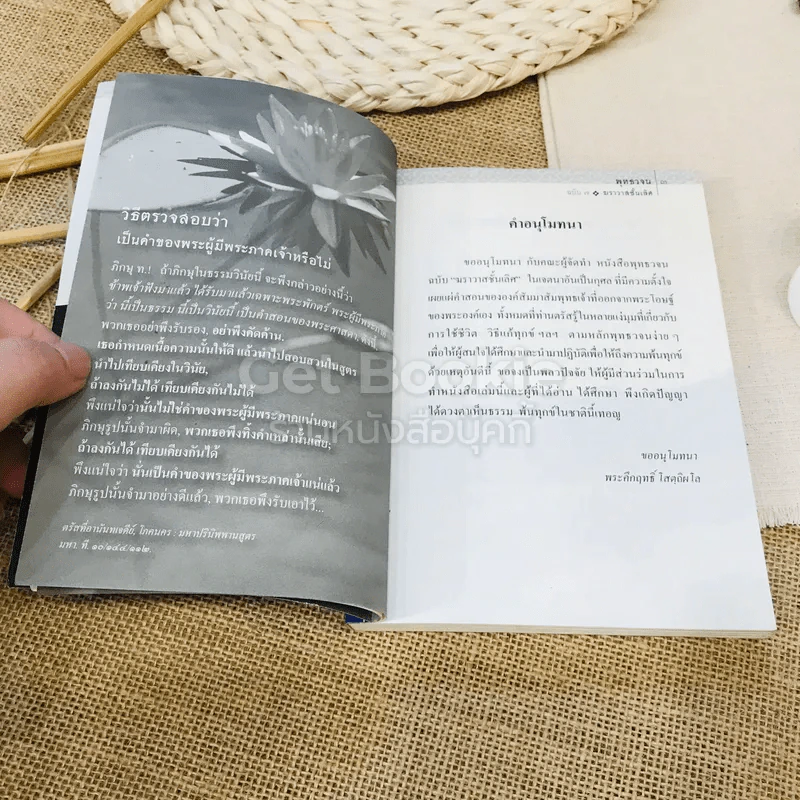 วิธีตรวจสอบว่า
เป็นคำของพระผู้มีพระภาคเจ้าหรือไม่
ภิกษุ ท.! ถ้าภิกษุในธรรมวินัยนี้ จะพึงกล่าวอย่างนี้ว่า
ข้าพเจ้าฟังมาแล้ว ได้รับมาแล้วเฉพาะพระพักตร์ พระผู้มีพระภาค
ว่า นี้เป็นธรรม นี้เป็นวินัยนี้ เป็นคำสอนของพระศาสดา, ดังนี้
พวกเธออย่าพึงรับรอง, อย่าพึงคัดค้าน.
เธอกำหนดเนื้อความนั้นให้ดี แล้วนำไปสอบสวนในสูตร
นำไปเทียบเคียงในวินัย,
ถ้าลงกันไม่ได้ เทียบเคียงกันไม่ได้
พึงแน่ใจว่านั้นไม่ใช่คำของพระผู้มีพระภาคแน่นอน
ภิกษุรูปนั้นจำมาผิด, พวกเธอพึงทิ้งคำเหล่านั้นเสีย;
ถ้าลงกันได้ เทียบเคียงกันได้
พึงแน่ใจว่า นั่นเป็นคำของพระผู้มีพระภาคเจ้าแน่แล้ว
ภิกษุรูปนั้นจำมาอย่างดีแล้ว, พวกเธอพึงรับเอาไว้...
ตรัสที่อานันทเจดีย์, โภคนคร : มหาปรินิพพานสูตร
มหา. ที. ๑๐/๑๔๔/๑๑๒.
พุทธวจน
ฆราวาสชั้นเลิศ
คำอนุโมทนา
ขออนุโมทนา กับคณะผู้จัดทำ หนังสือพุทธวจน
ฉบับ “ฆราวาสชั้นเลิศ” ในเจตนาอันเป็นกุศล ที่มีความตั้งใจ
เผยแผ่คำสอนขององค์สัมมาสัมพุทธเจ้าที่ออกจากพระโอษฐ์
ของพระองค์เอง ทั้งหมดที่ท่านตรัสรู้ในหลายแง่มุมที่เกี่ยวกับ
การใช้ชีวิต วิธีแก้ทุกข์ ฯลฯ ตามหลักพุทธวจนง่าย ๆ
เพื่อให้ผู้สนใจได้ศึกษาและนำมาปฏิบัติเพื่อให้ถึงความพ้นทุกข์
ด้วยเหตุอันดีนี้ ขอจงเป็นพลวปัจจัย ให้ผู้มีส่วนร่วมในการ
ทำหนังสือเล่มนี้และผู้ที่ได้อ่าน ได้ศึกษา พึงเกิดปัญญา
ได้ดวงตาเห็นธรรม พ้นทุกข์ในชาตินี้เทอญ
ขออนุโมทนา
พระคึกฤทธิ์ โสตฺถิผโล
Get Bookie
ร้านหนังสือบุคกี้